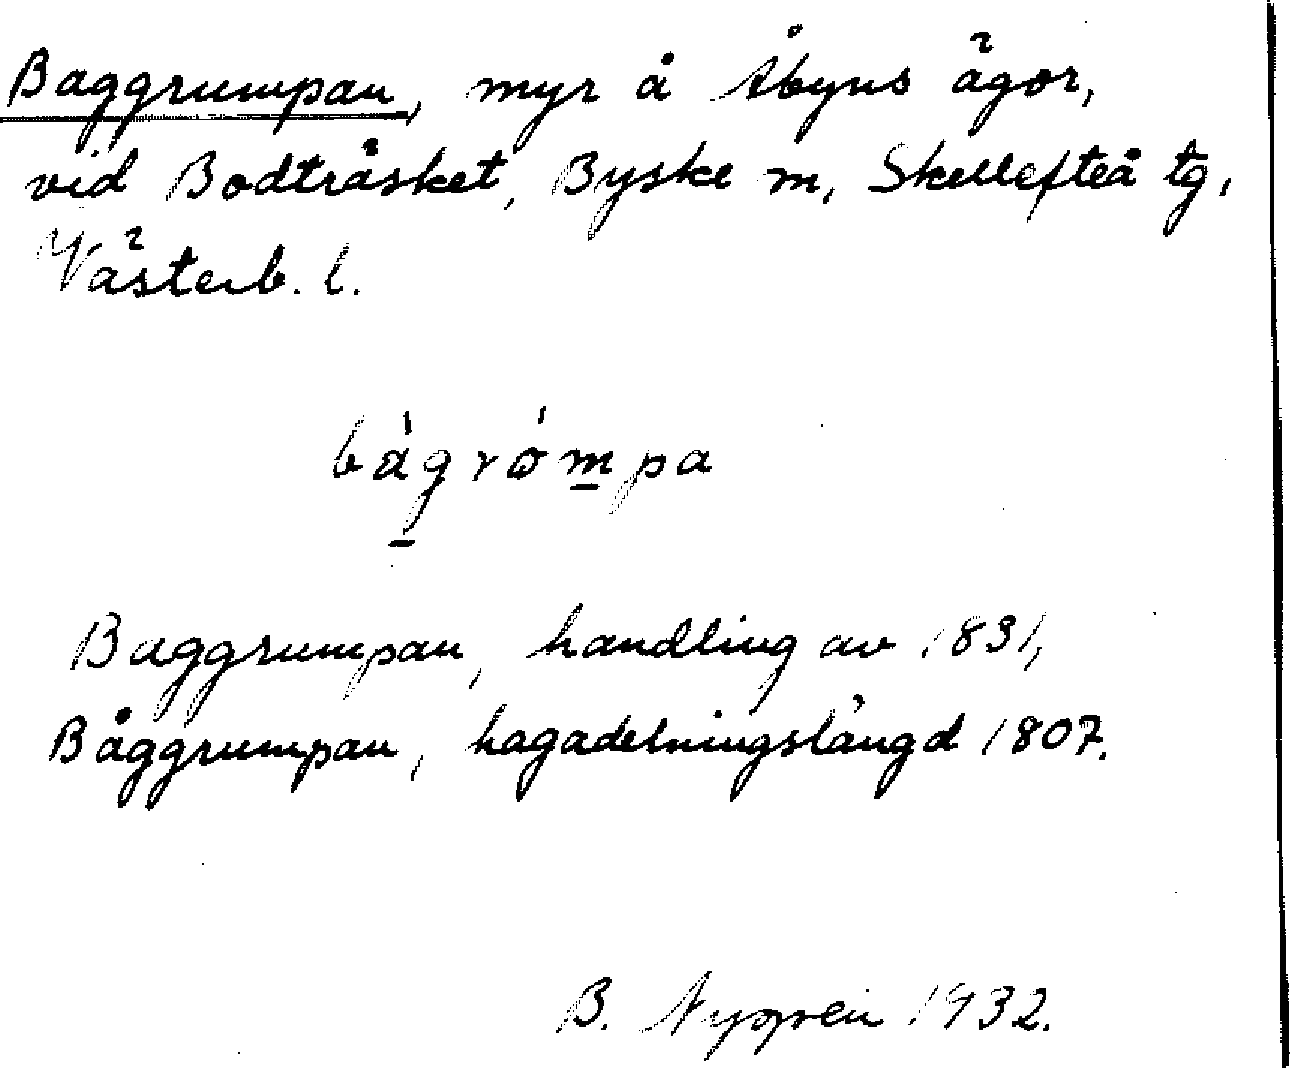 Baggrumpan, myr å Åbyns ägor,
vid Bodträsket, Byske sn, Skellefteå tg,
Västerb. l.
bágrómpa
Baggrumpan, handling av 1831,
Båggrumpan, hagadelningslängd 1807.
B. 1932.